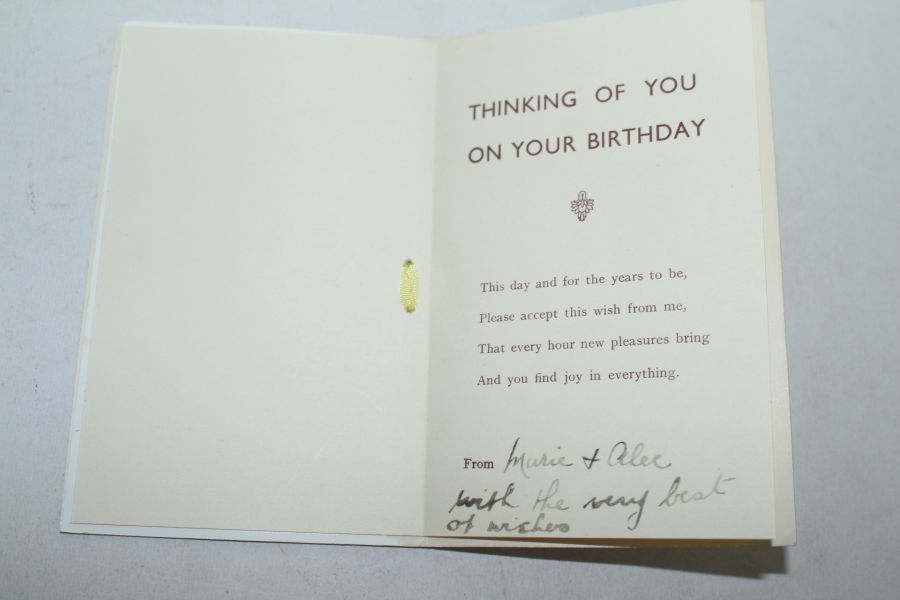 THINKING OF YOU
ON YOUR BIRTHDAY
This day and for the years to be,
Please accept this wish from me,
That every hour new pleasures bring
And you find joy in everything.
From Marie + Alec
with the very best
of wishes